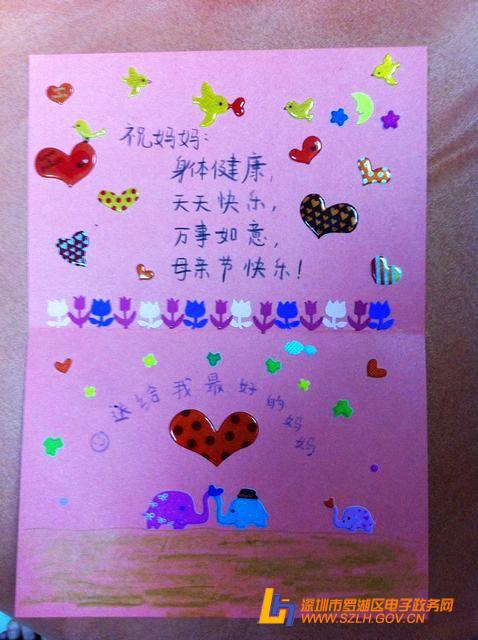 祝妈妈:
身体健康,
天天快乐,
万事如意,
母亲节快乐!
送给我最好的妈妈
深圳市罗湖区电子政务网
WWW.SZLH.GOV.CN